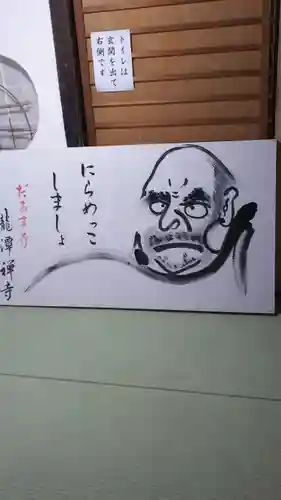 トイレは
玄関を出て
右側です
にらめっこ
しましょ
だるま寺
龍潭禅寺